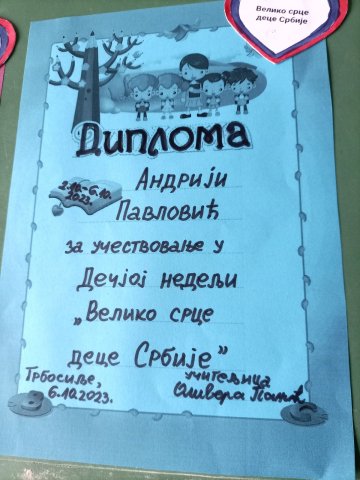 Велико срце
деце Србије
Диплома
2.10.-6.10.
2023.
Андрији
Павловић
за учествовање у
Дечјој недељи
„Велико срце
деце Србије”
Трбосиље,
6.10.2023.
учитељица
Оливера Панић